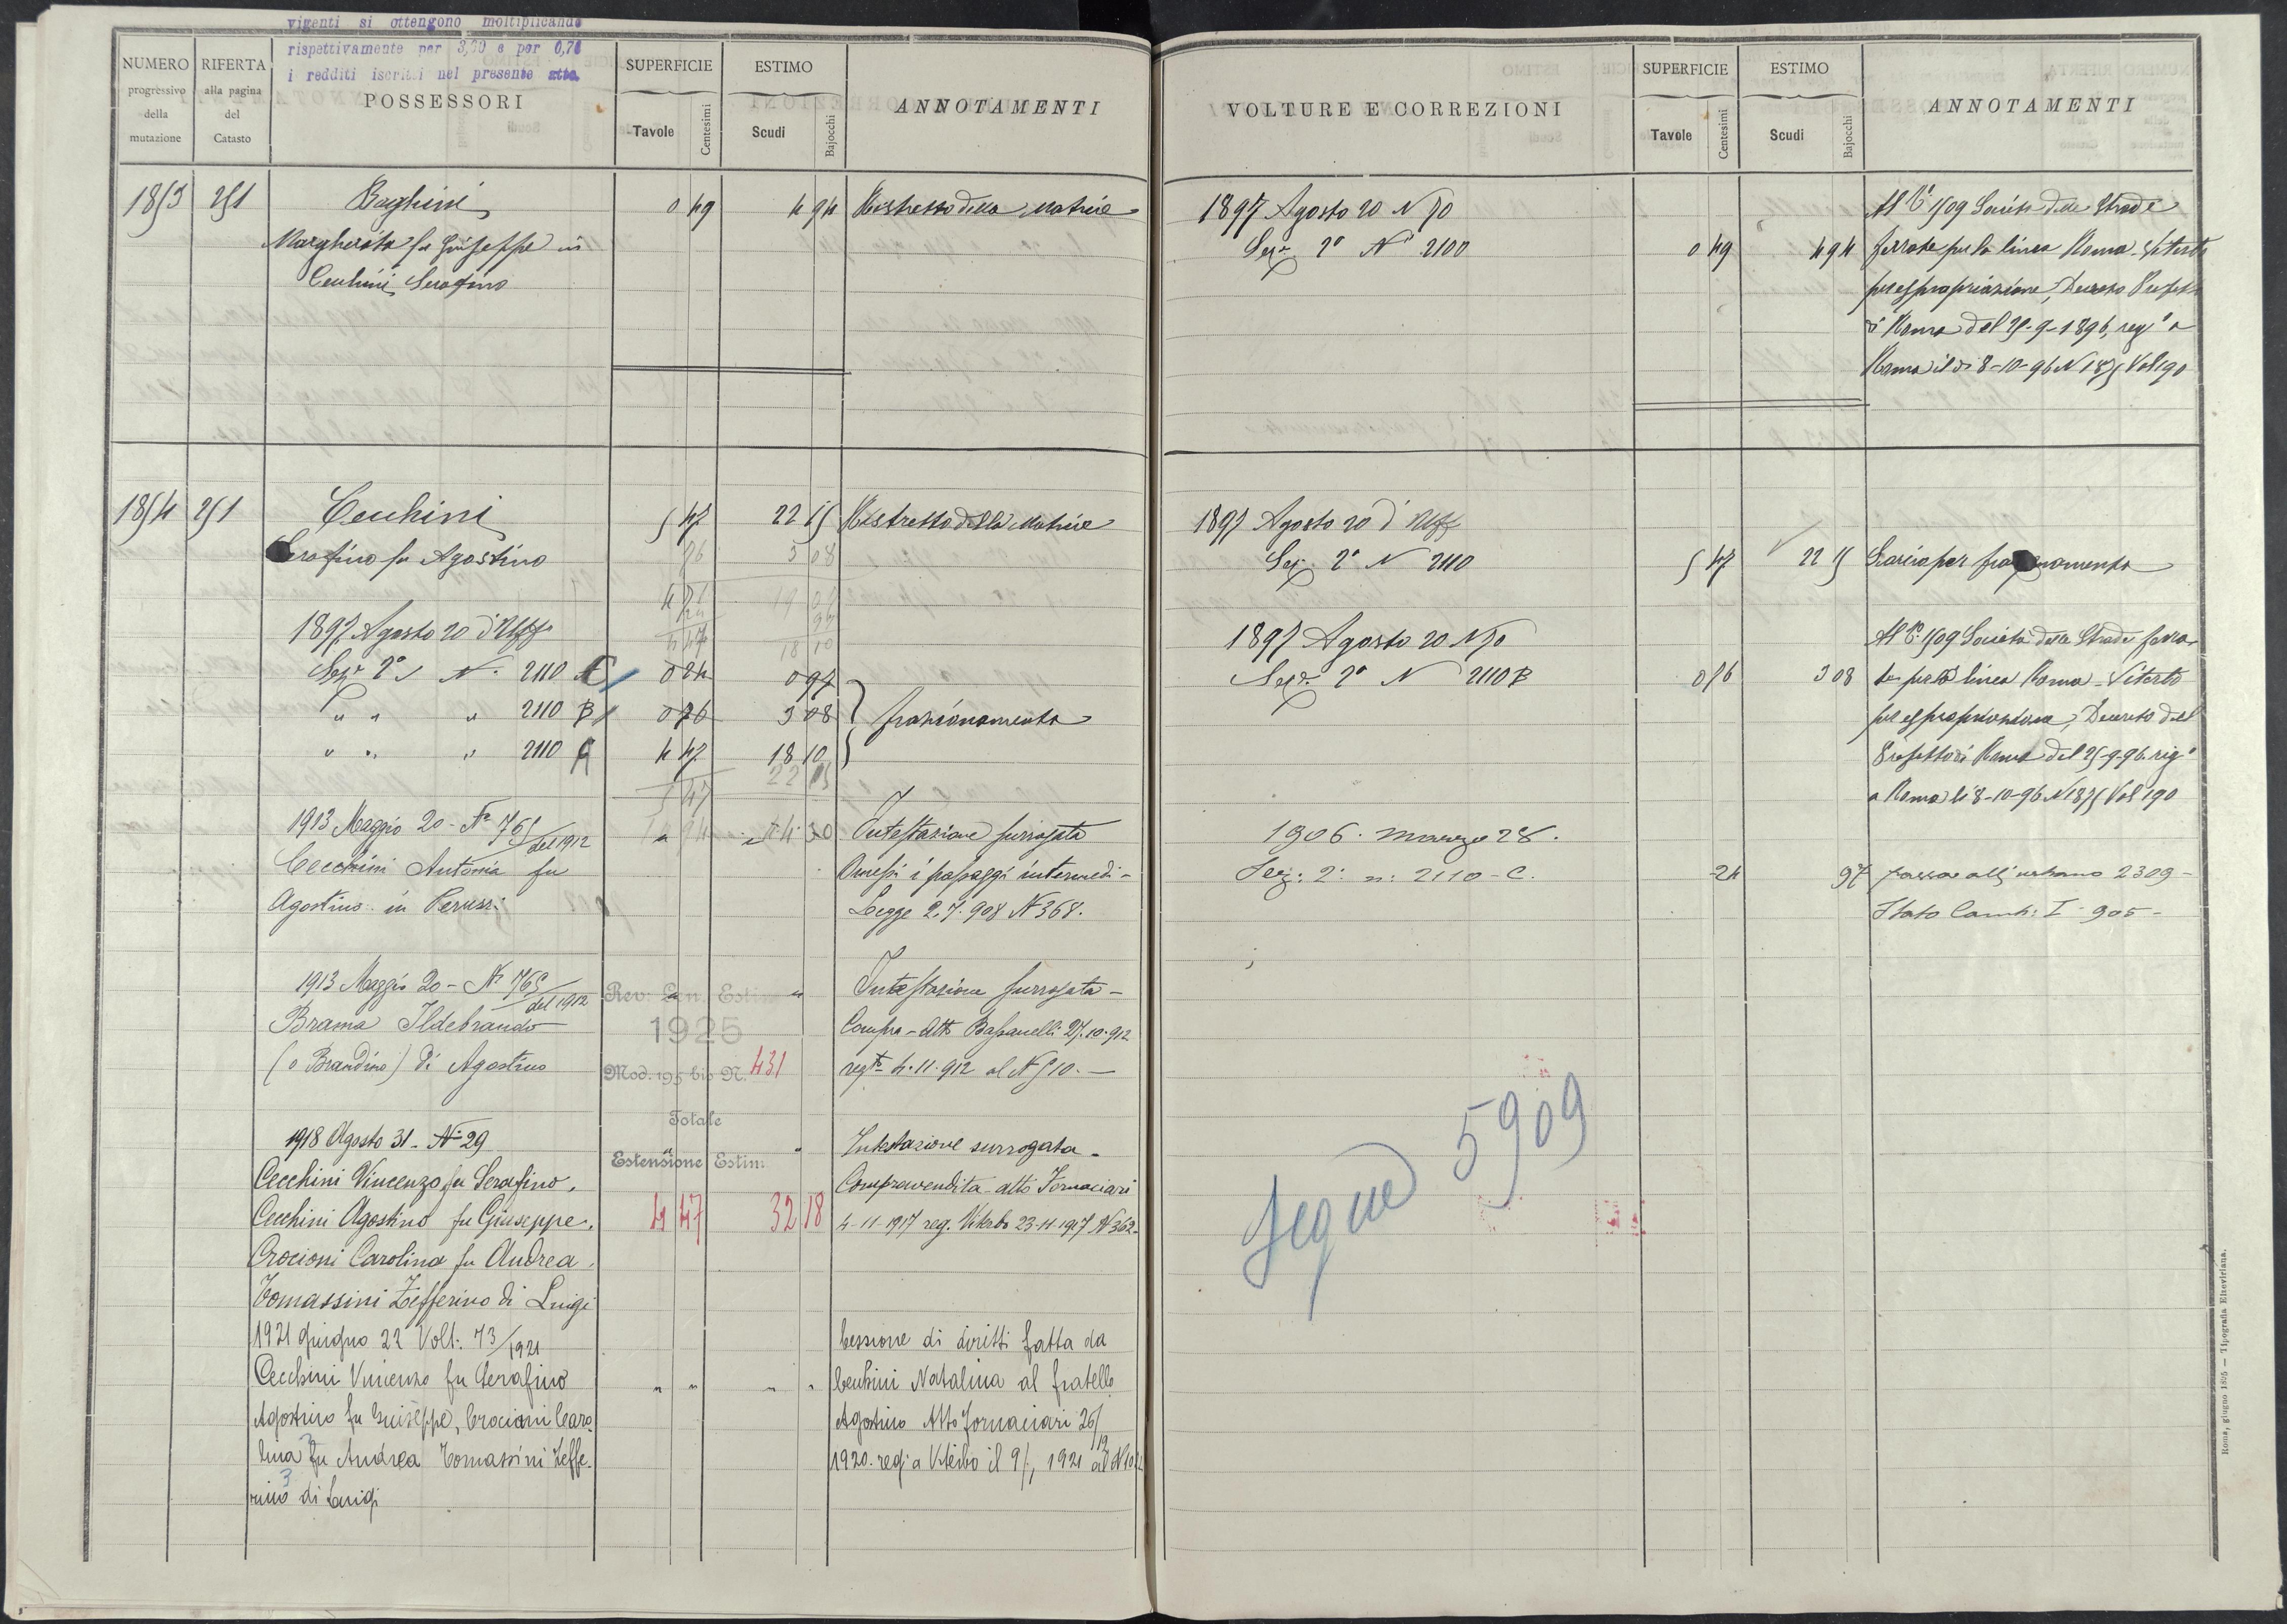 vigenti si ottengono moltiplicando
rispettivamente per 3,20 e per 0,76
i redditi iscritti nel presente atto
NUMERO progressivo della mutazione
RIFERTA alla pagina del Catasto
POSSESSORI
SUPERFICIE
Tavole Centesimi
ESTIMO
Scudi Bajocchi
ANNOTAMENTI
1853 251 Baghini 0 49 4 94 Ristretto della Matrice
Margherita fu Giuseppe in
Cecchini Serafino
1854 251 Cecchini 5 47 22 15 Ristretto della Matrice
Serafino fu Agostino 76 3 08
1897 Agosto 20 d'Uff 18 10
Sez. 2ª N. 2110 C 0 24 0 97
" " " 2110 B 0 76 3 08 frazionamento
" " " 2110 A 4 47 18 10
5 47 22 15
1913 Maggio 20 - N° 765 del 1912 Intestazione surrogata
Cecchini Antonia fu Omessi i passaggi intermedi -
Agostino in Perussi Legge 2.7.908 N 368.
1913 Maggio 20 - N° 765 del 1912 Rev. Gen. Estimi Intestazione surrogata -
Brama Ildebrando 1925 Compra - Atto Bassanelli 27.10.912
(o Brandino) di Agostino Mod. 195 bis N. 431 regto 4.11.912 al N 510. -
Totale
1918 Agosto 31 - N° 29 Intestazione surrogata -
Estensione Estim.
Cecchini Vincenzo fu Serafino, Compravendita - atto Fornaciari
Cecchini Agostino fu Giuseppe, 4 47 32 18 4-11-1917 reg. Viterbo 23-11-1917 N 362-
Crocioni Carolina fu Andrea,
Tomassini Zefferino di Luigi
1921 giugno 22 Volt: 73/1921 Cessione di diritti fatta da
Cecchini Vincenzo fu Serafino " " " " Cecchini Natalina al fratello
Agostino fu Giuseppe, Crocioni Caro- Agostino Atto Fornaciari 26/12
lina fu Andrea Tomassini Zeffe- 1920. reg. a Viterbo il 9/1 1921 al N
rino di Luigi
VOLTURE E CORREZIONI
SUPERFICIE
Tavole Centesimi
ESTIMO
Scudi Bajocchi
ANNOTAMENTI
1897 Agosto 20 N 70 Al C° 1509 Società delle Strade
Sez. 2ª N° 2100 0 49 4 94 ferrate per la linea Roma-Viterbo
per espropriazione, Decreto Prefett.
di Roma del 25-9-1896, reg° a
Roma il dì 8-10-96 N 1875 Vol 190
1897 Agosto 20 d'Uff
Sez. 2ª N 2110 5 47 22 15 Scarico per frazionamento
1897 Agosto 20 N 70 Al C° 1509 Società delle Strade ferra-
Sez. 2ª N 2110 B 0 76 3 08 te per la linea Roma-Viterbo
per espropriazione, Decreto del
Prefetto di Roma del 25-9-96. reg°
a Roma li 8-10-96 N 1875 Vol 190
1906. marzo 28.
Sez: 2ª n: 2110-C. - 24 97 passa all'urbano 2309 -
Stato Camb: I 905 -
segue 5909
Roma, giugno 1895 — Tipografia Elzeviriana.